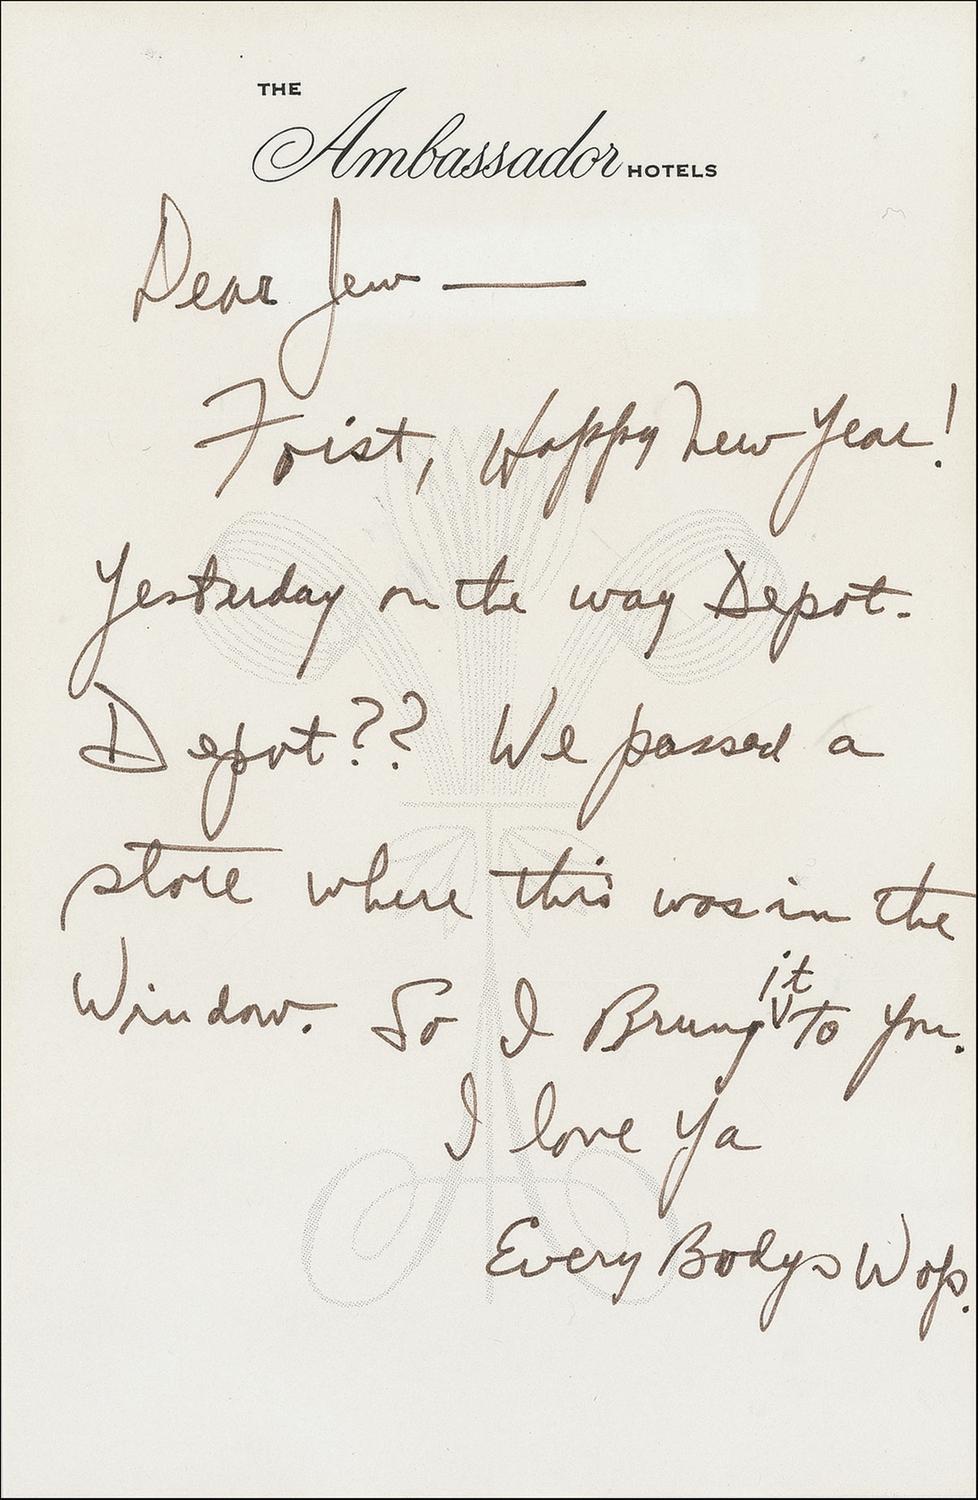 THE
Ambassador HOTELS
Dear Jew —
Foist, Happy New Year!
Yesterday on the way Depot.
Depot?? We passed a
store where this was in the
Window. So I Brung it to You.
I love Ya
Every Bodys Wop.